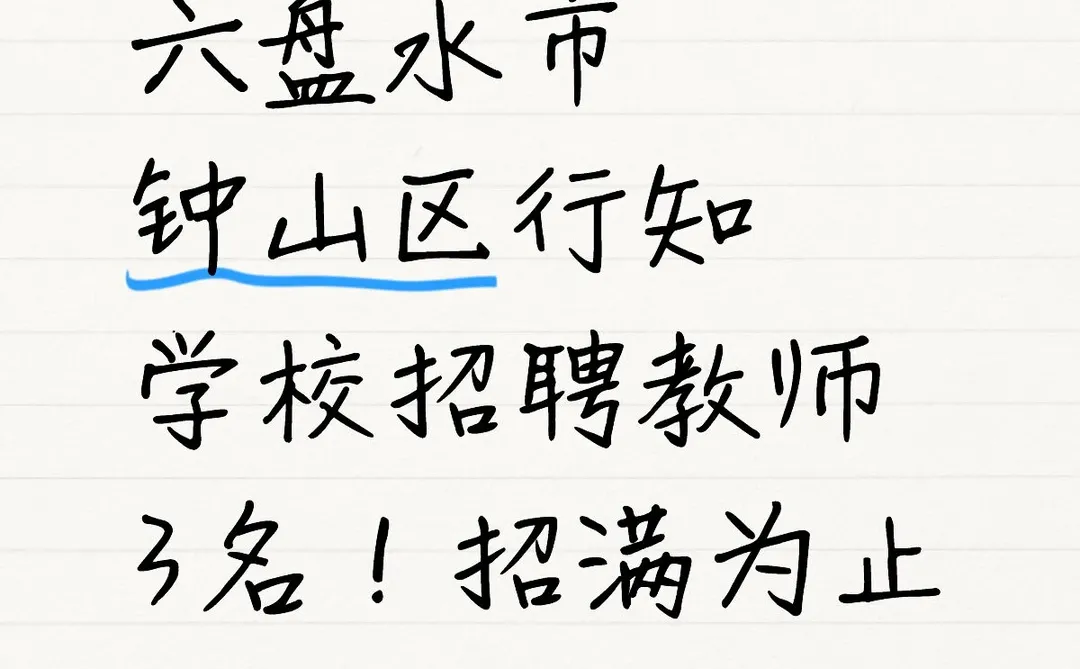 六盘水市
钟山区行知
学校招聘教师
3名！招满为止